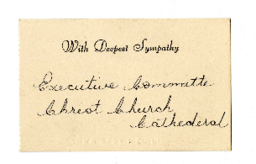 With Deepest Sympathy
Executive Committe
Christ Church
Cathederal